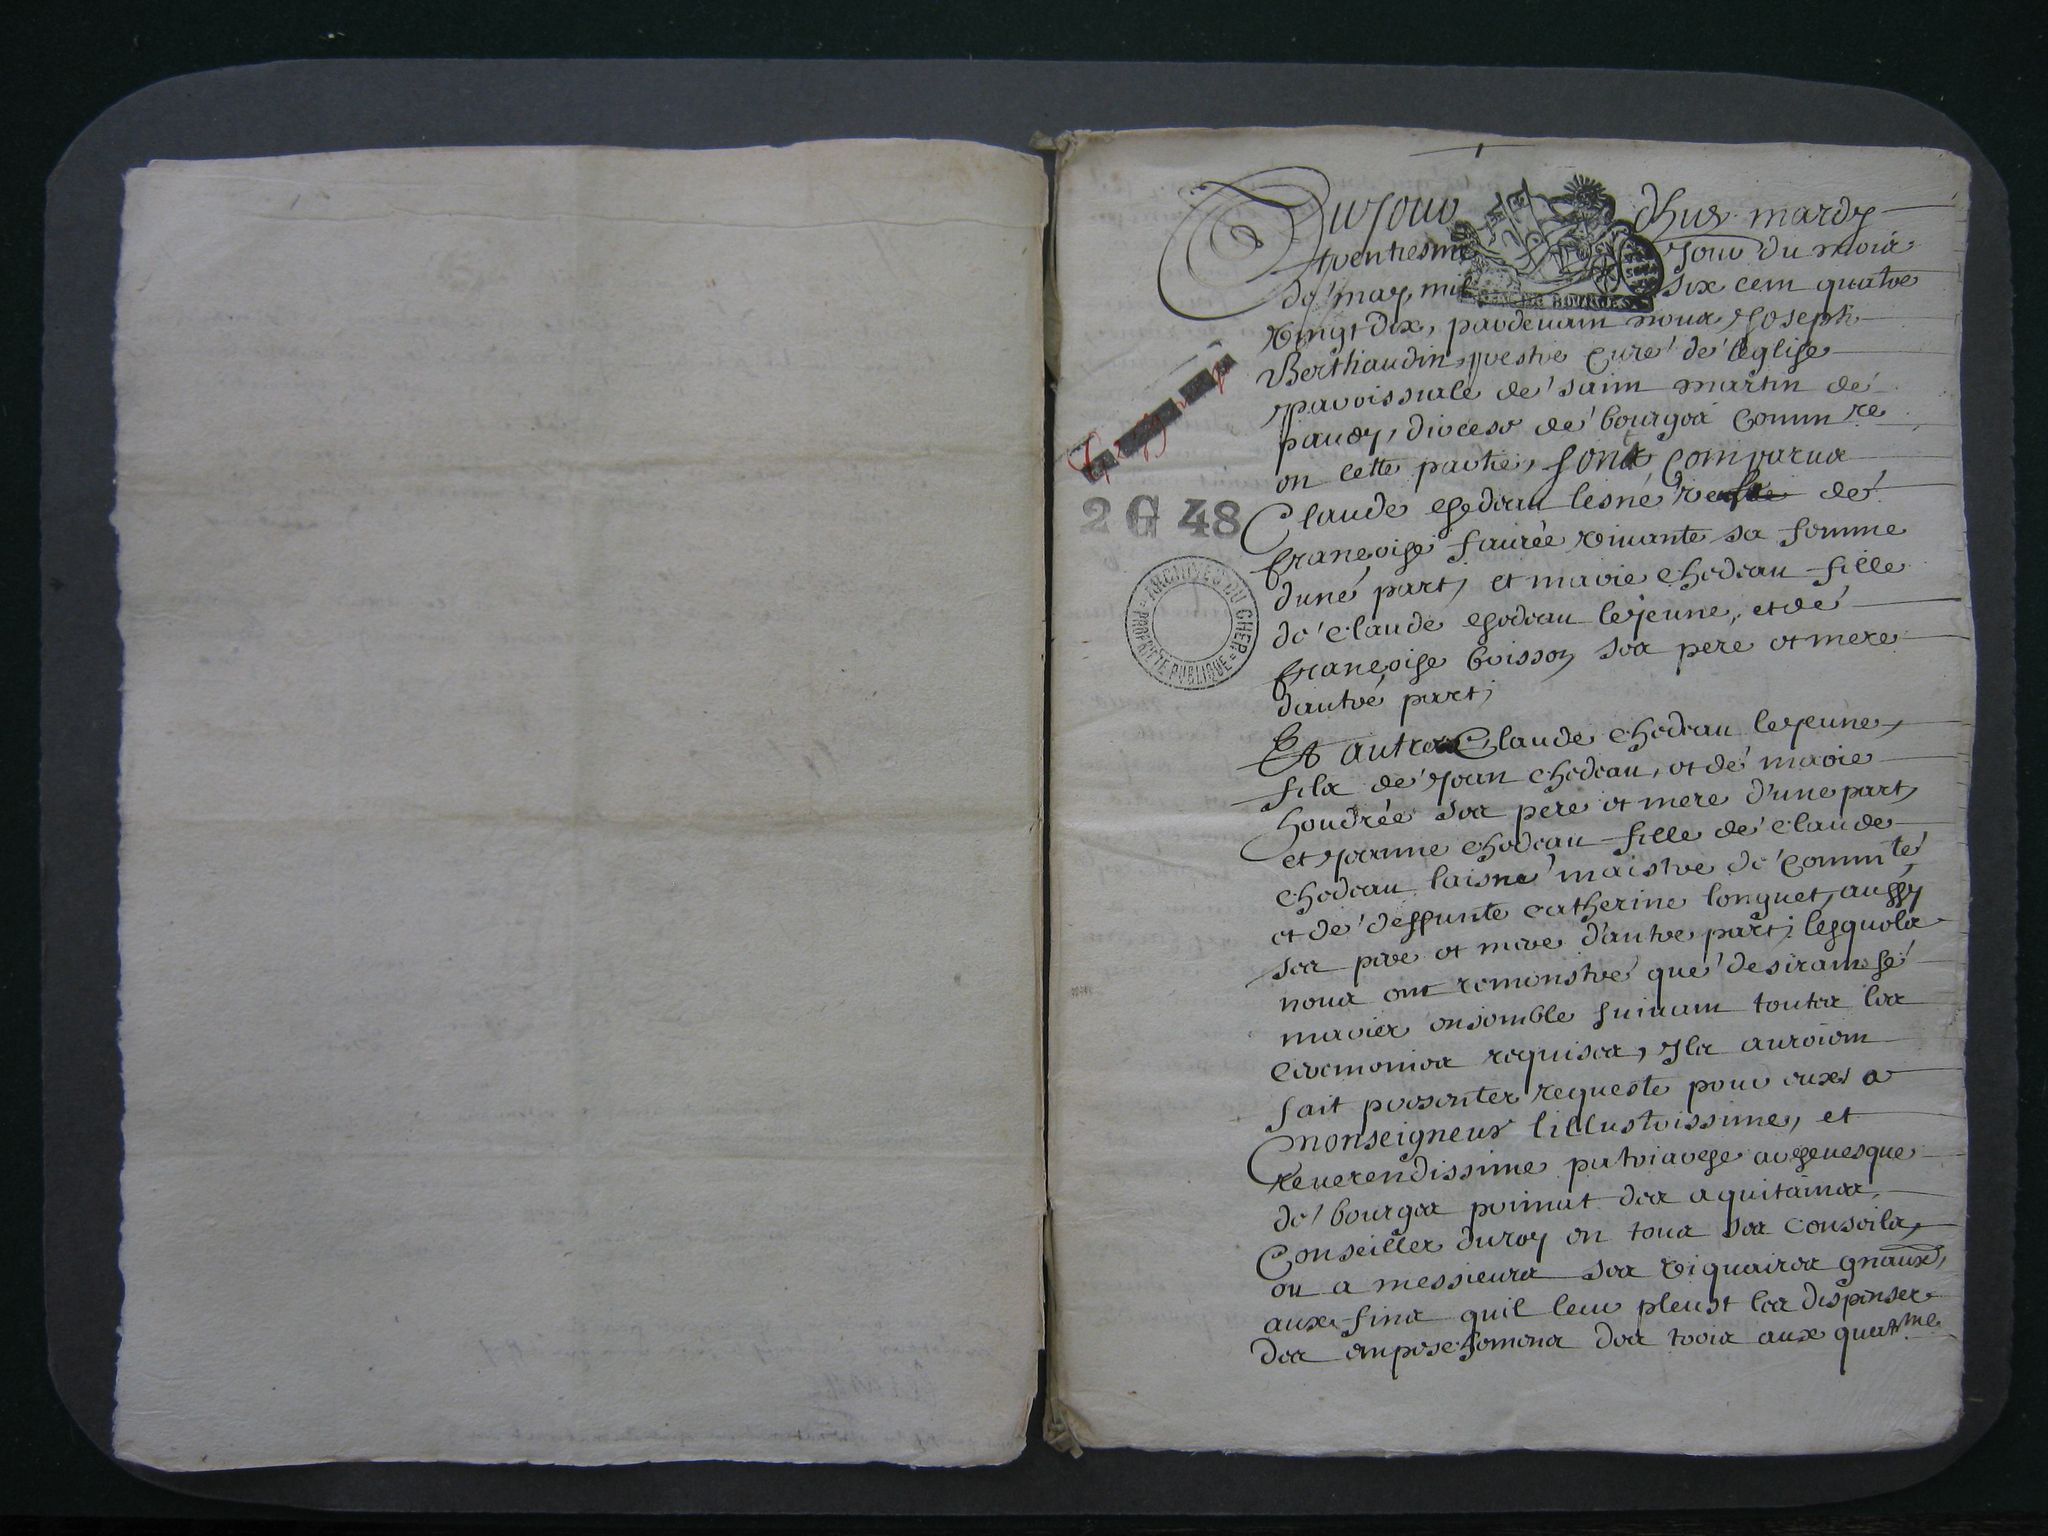 Du Jour dhuy mardy
trentiesme Jour du mois
de may mil six cem quatre
vingt dix, pardeuam nous Joseph
Berthaudin prestre Curé de leglise
parroissiale de saim martin de
paudy, diocese de bourges Comm re
en cette partie, sont Comparus
Claude chedeau lesné de
francoise faurée viuante sa femme
dune part, et marie chedeau fille
de Claude chedeau leJeune, et de
francoise boisson ses pere et mere
dautre part;
Et autres Claude chedeau leJeune,
fils de Jean chedeau, et de marie
houdrée ses pere et mere d'une part,
et Jeanne chedeau fille de Claude
chedeau laisné maistre de Comm té
et de deffunte catherine longuet, aussy
ses pere et mere d'autre part; lesquels
nous ont remonstré que desirans se
marier ensemble suiuam toutes les
ceremonies requises, Ils auroiem
fait presenter requeste pour eux a
monseigneur lillustrissime, et
reuerendissime patriarche archeuesque
de bourges primat des aquitaines,
Conseiller du roy en tous ses Conseils,
ou a messieurs ses viquaires gnaux,
aux fins quil leur pleust les dispenser
des empeschemens des trois aux quatr me
2 G 48
ARCHIVES DU CHER
PROPRIETE PUBLIQUE
DE BOURGES